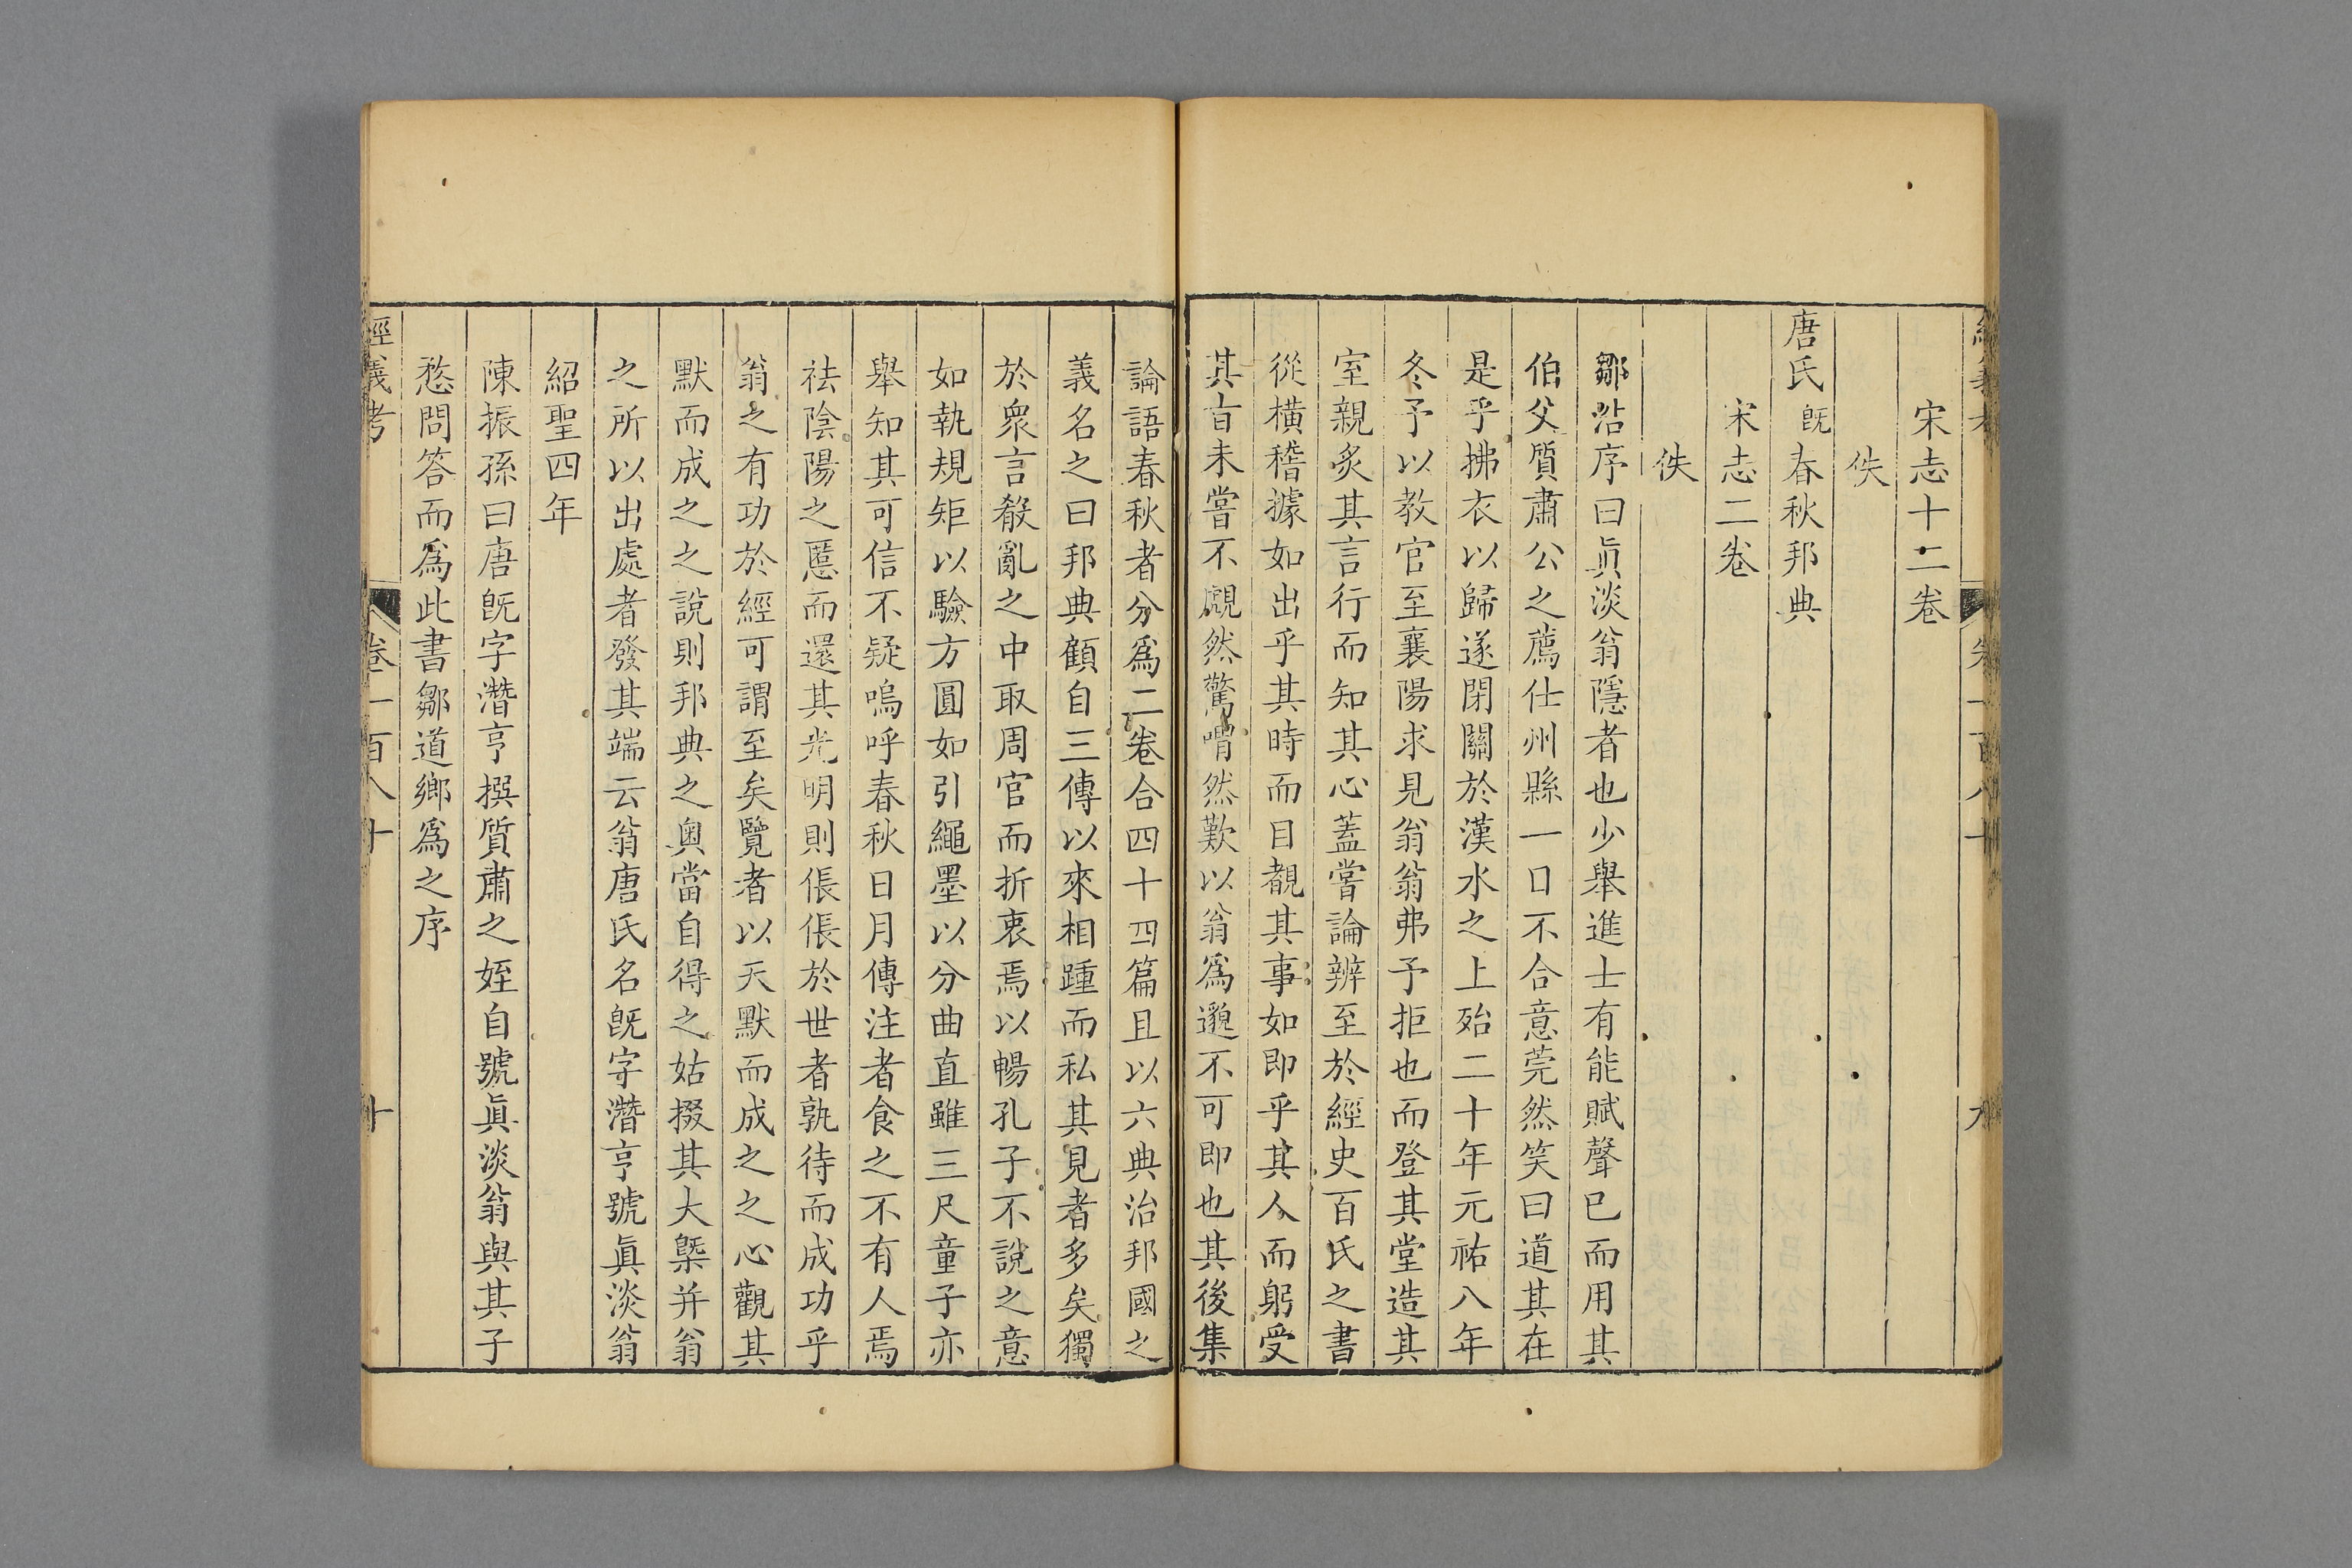 宋志十二卷
佚
唐氏旣春秋邦典
宋志二卷
佚
鄒浩序曰眞淡翁隱者也少舉進士有能賦聲已而用其
伯父質肅公之薦仕州縣一口不合意莞然笑曰道其在
是乎拂衣以歸遂閉關於漢水之上殆二十年元祐八年
冬予以教官至襄陽求見翁翁弗予拒也而登其堂造其
室親炙其言行而知其心蓋嘗論辨至於經史百氏之書
從橫稽據如出乎其時而目覩其事如即乎其人而躬受
其㫖未嘗不覷然驚喟然歎以翁爲邈不可即也其後集
論語春秋者分爲二卷合四十四篇且以六典治邦國之
義名之曰邦典顧自三傳以來相踵而私其見者多矣獨
於衆言殽亂之中取周官而折衷焉以暢孔子不說之意
如執規矩以驗方圓如引繩墨以分曲直雖三尺童子亦
舉知其可信不疑嗚呼春秋日月傳注者食之不有人焉
祛陰陽之慝而還其光明則倀倀於世者孰待而成功乎
翁之有功於經可謂至矣覽者以天默而成之之心觀其
默而成之之說則邦典之奧當自得之姑掇其大槩并翁
之所以出處者發其端云翁唐氏名旣字潛亨號眞淡翁
紹聖四年
陳振孫曰唐旣字潛亨撰質肅之姪自號眞淡翁與其子
愁問答而爲此書鄒道鄉爲之序
經義考 卷一百八十 十